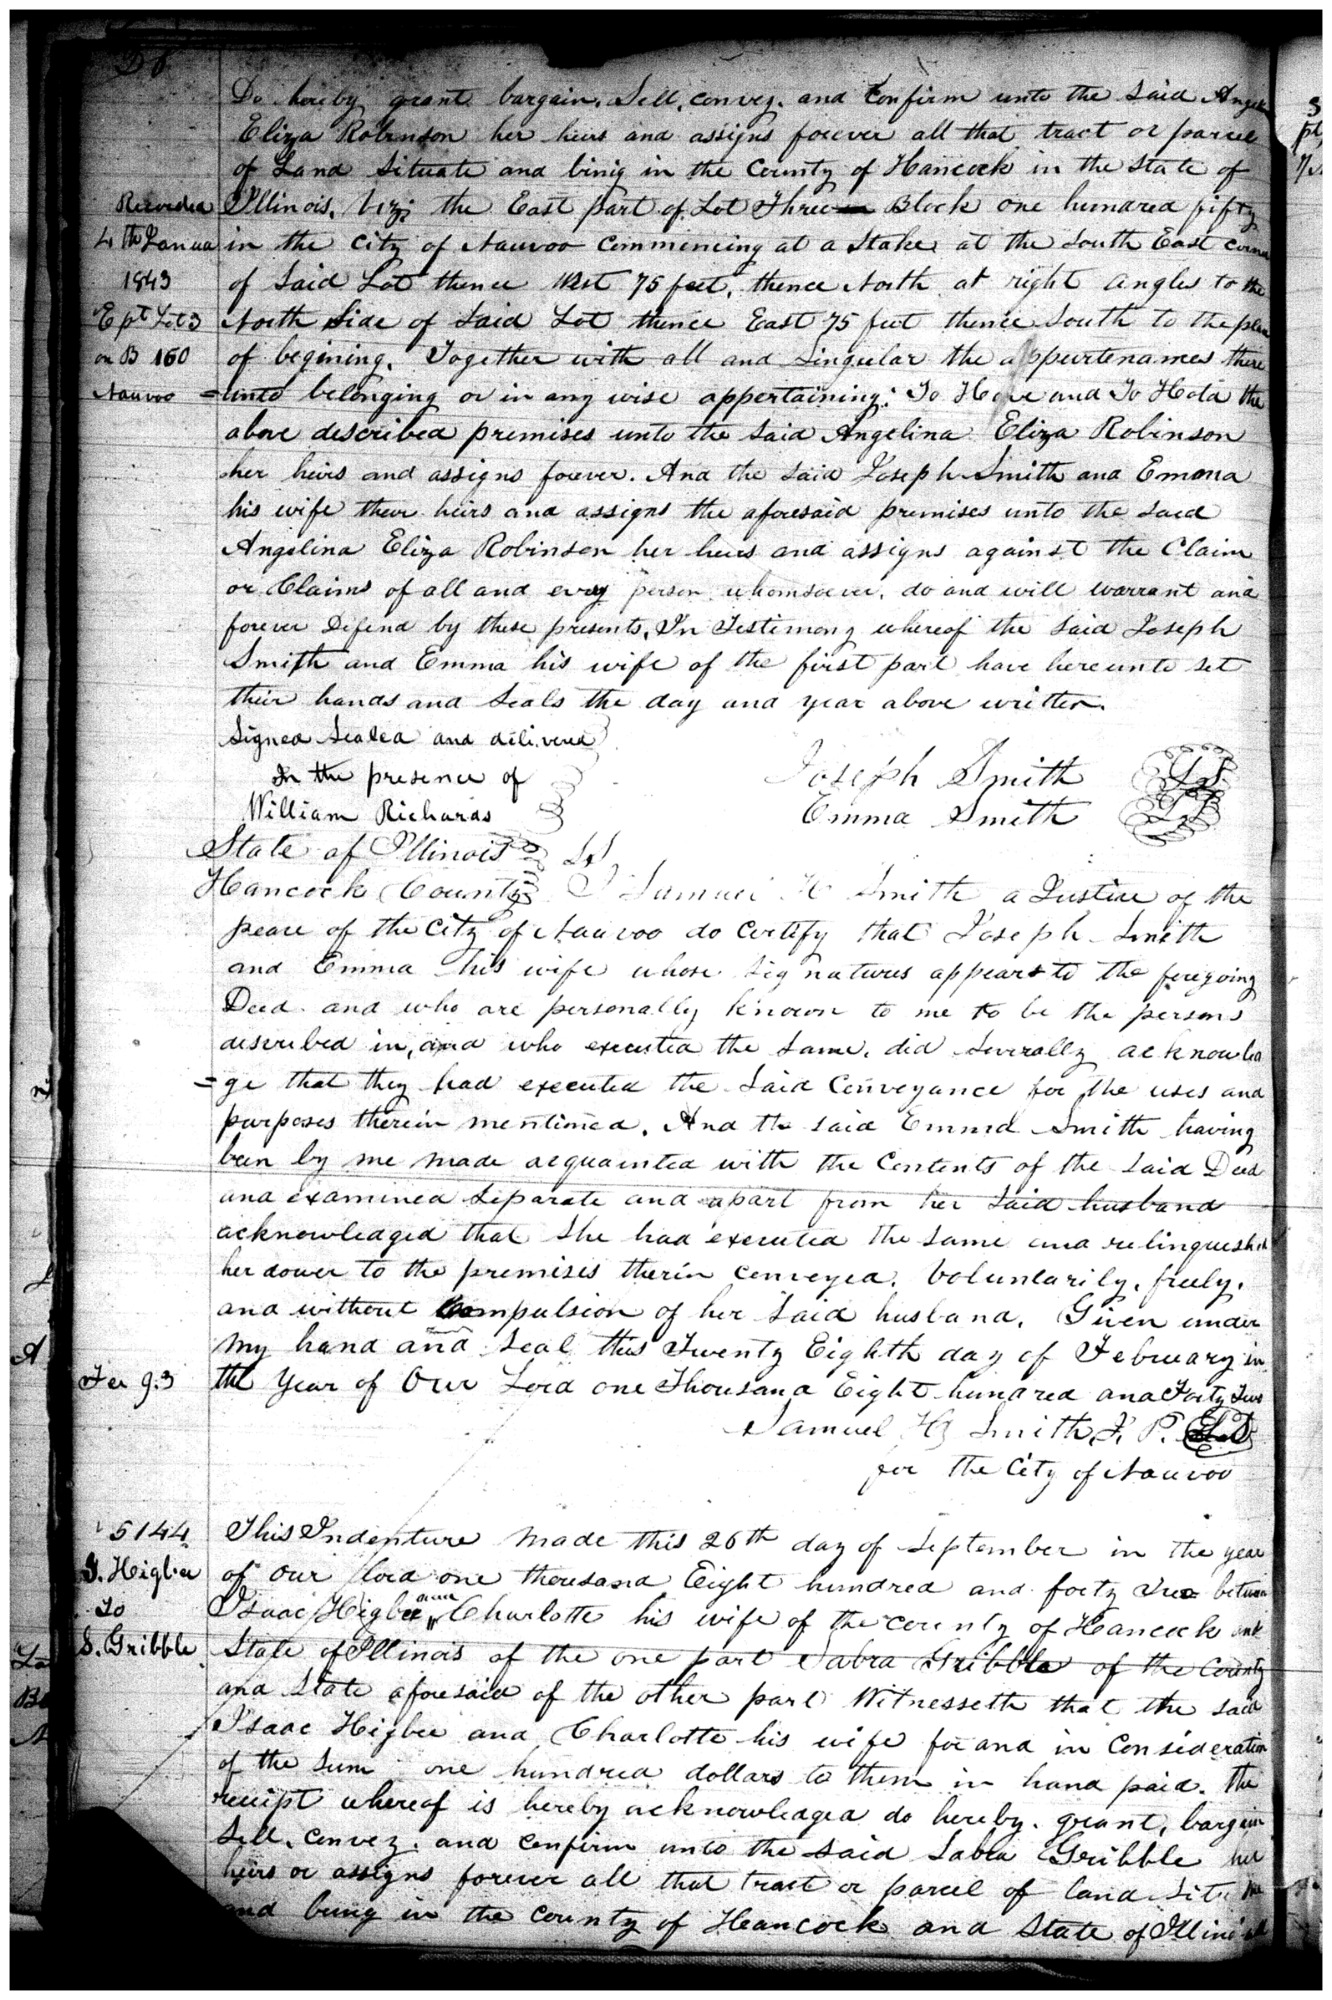 Do hereby grant bargain, Sell, convey, and Confirm unto the said Angeli
Eliza Robinson her heirs and assigns forever all that tract or parcel
of Land Situate and bing in the County of Hancock in the State of
Recorded Illinois, Viz; the East part of Lot Three Block one hundred fifty
4th Janua in the City of Nauvoo Commencing at a Stake at the South East corner
1843 of Said Lot thence West 75 feet, thence North at right angles to the
E pt Lot 3 North Side of Said Lot thence East 75 feet thence South to the place
on B 150 of begining. Together with all and Singular the appurtenances there
Nauvoo =unto belonging or in any wise appertaining: To Have and To Hold the
above described premises unto the Said Angelina Eliza Robinson
her heirs and assigns forever. And the said Joseph Smith and Emma
his wife their heirs and assigns the aforesaid premises unto the said
Angelina Eliza Robinson her heirs and assigns against the Claim
or Claims of all and every person whomsoever, do and will warrant and
forever Defend by these presents, In Testimony whereof the Said Joseph
Smith and Emma his wife of the first part have hereunto set
their hands and Seals the day and year above written.
Signed Sealed and delivered
In the presence of Joseph Smith LS
William Richards Emma Smith LS
State of Illinois SS
Hancock County I Samuel H Smith a Justice of the
peace of the City of Nauvoo do Certify that Joseph Smith
and Emma his wife whose Signatures appears to the foregoing
Deed and who are personally known to me to be the persons
described in, and who executed the Same, did Severally acknowled
=ge that they had executed the Said Conveyance for the uses and
purposes therein mentioned. And the said Emma Smith having
been by me made acquainted with the Contents of the Said Deed
and examined Separate and apart from her Said husband
acknowledged that She had executed the Same and relinquished
her dower to the premises therin conveyed, Voluntarily, freely,
and without Compulsion of her Said husband. Given under
my hand and Seal this Twenty Eighth day of February in
Fee 93 the Year of Our Lord one Thousand Eight hundred and Forty Two
Samuel H Smith, J. P. LS
for the City of Nauvoo
5144 This Indenture made this 26th day of September in the year
I. Higbee of our lord one thousand Eight hundred and forty two between
To Isaac Higbee and Charlotte his wife of the county of Hancock and
S. Gribble State of Illinois of the one part Sabra Gribble of the County
and State aforesaid of the other part Witnesseth that the said
Isaac Higbee and Charlotte his wife for and in Consideration
of the Sum one hundred dollars to them in hand paid. the
receipt whereof is hereby acknowledged do hereby, grant, bargain
Sell, Convey, and Confirm unto the Said Sabra Gribble her
heirs or assigns forever all that tract or parcel of land Situate
and being in the County of Hancock and State of Illinois